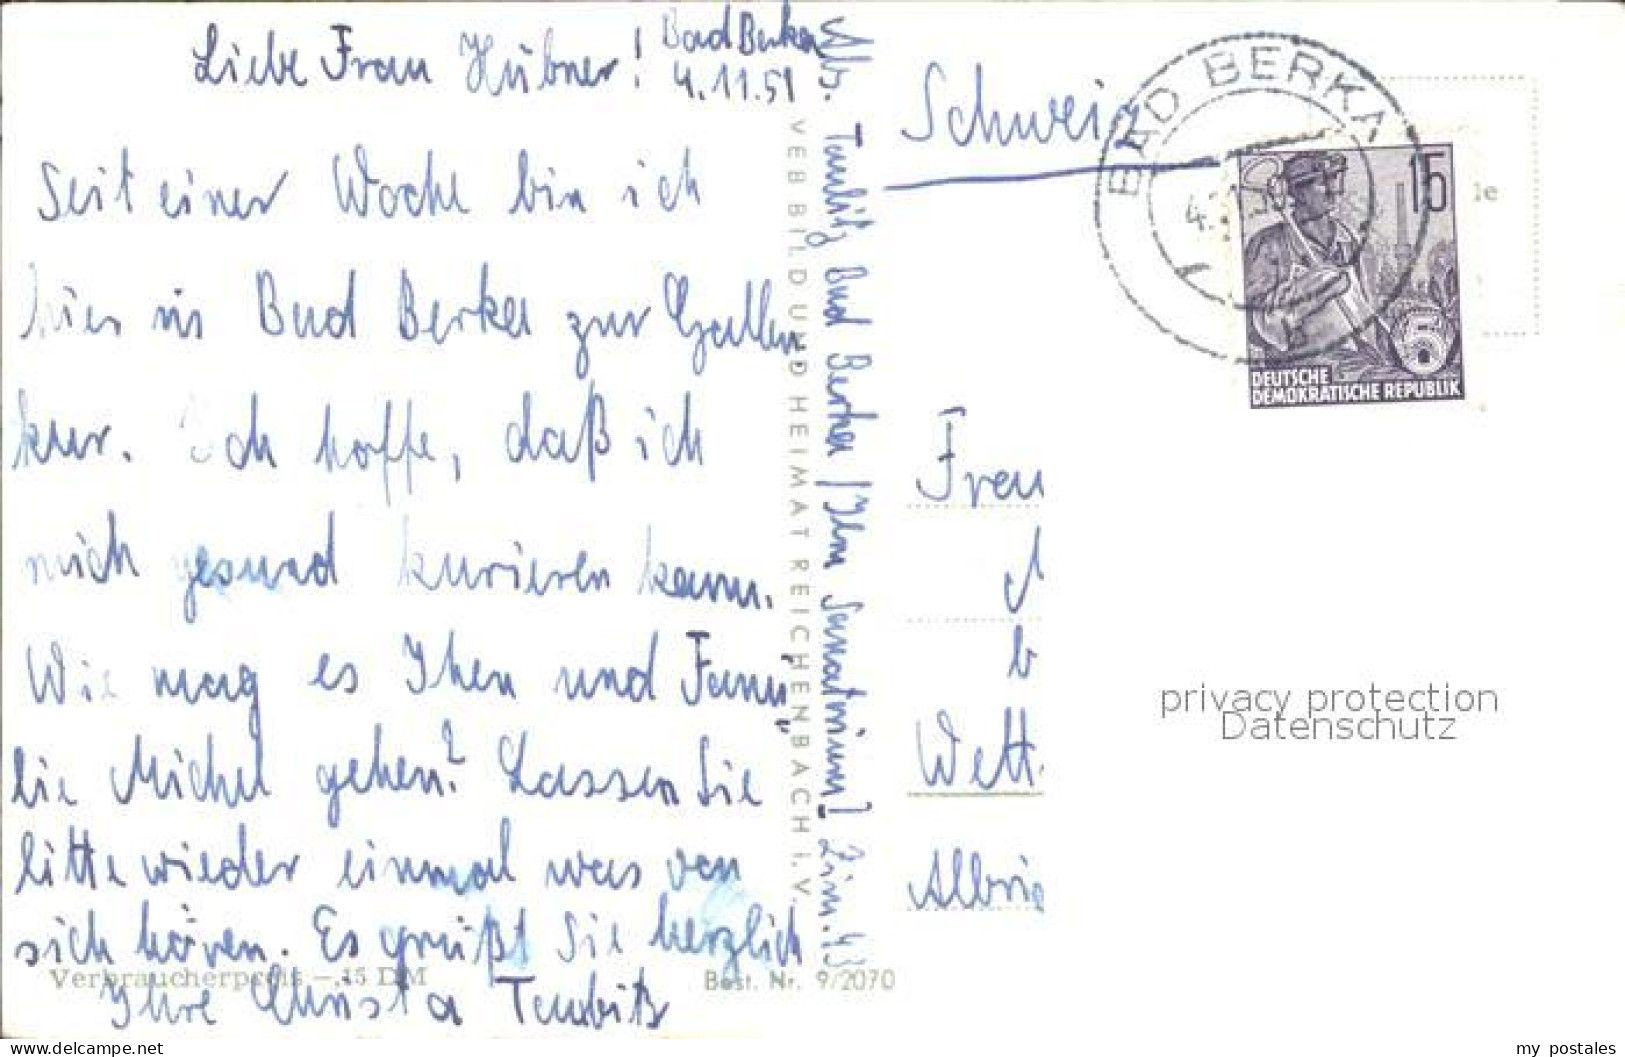 Bad Berka
4.11.51
Liebe Frau Hübner!
Seit einer Woche bin ich
hier in Bad Berka zur Gallen
kur. Ich hoffe, daß ich
mich gesund kurieren kann.
Wie mag es Ihen und Fami
lie Michel gehen? Lassen Sie
bitte wieder einmal was von
sich hören. Es grüßt Sie herzlich
Ihre Christa
Verbraucherpreis –,15 DM
Best. Nr. 9/2070
VEB BILD UND HEIMAT REICHENBACH I. V.
Abs. Bad Berka /Ilm Sanatorium] Zim. 43
Schweiz
BAD BERKA
15
5
DEUTSCHE
DEMOKRATISCHE REPUBLIK
le
Frau
b
Wett
Albri
privacy protection
Datenschutz
www.delcampe.net
my_postales